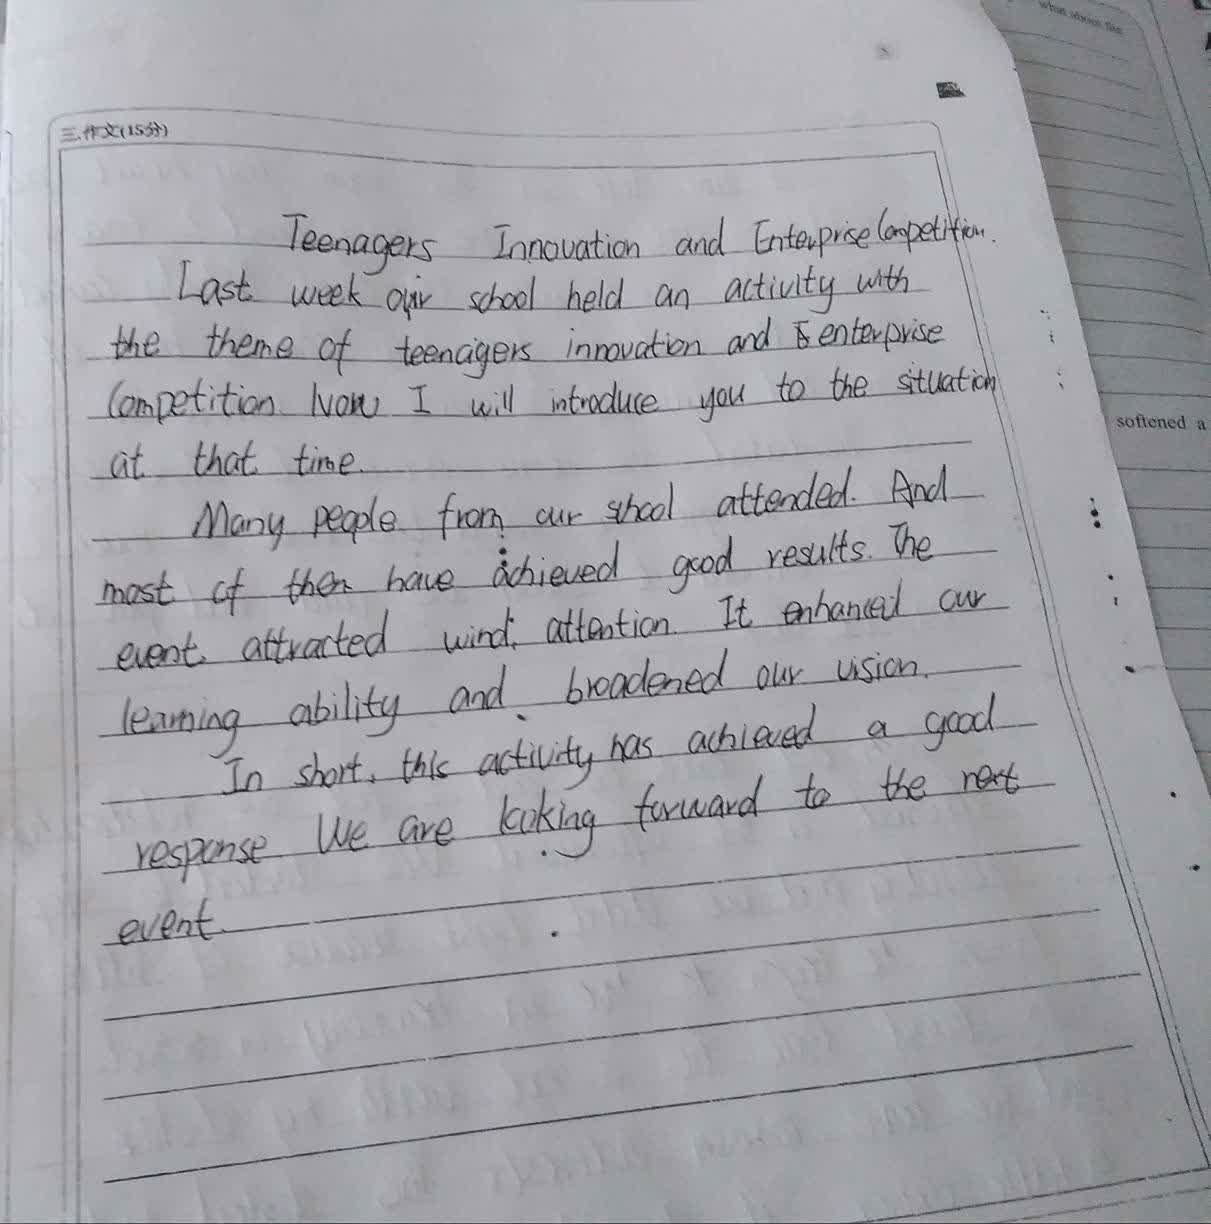 what about the
三.作文(15分)
Teenagers Innovation and Enterprise Competition.
Last week our school held an activity with
the theme of teenagers innovation and enterprise
Competition Now I will introduce you to the situation
at that time.
softened a
Many people from our school attended. And
most of then have achieved good results. The
event attracted wind attention. It enhanced our
learning ability and broadened our vision.
In short, this activity has achieved a good
response We are looking forward to the next
event.